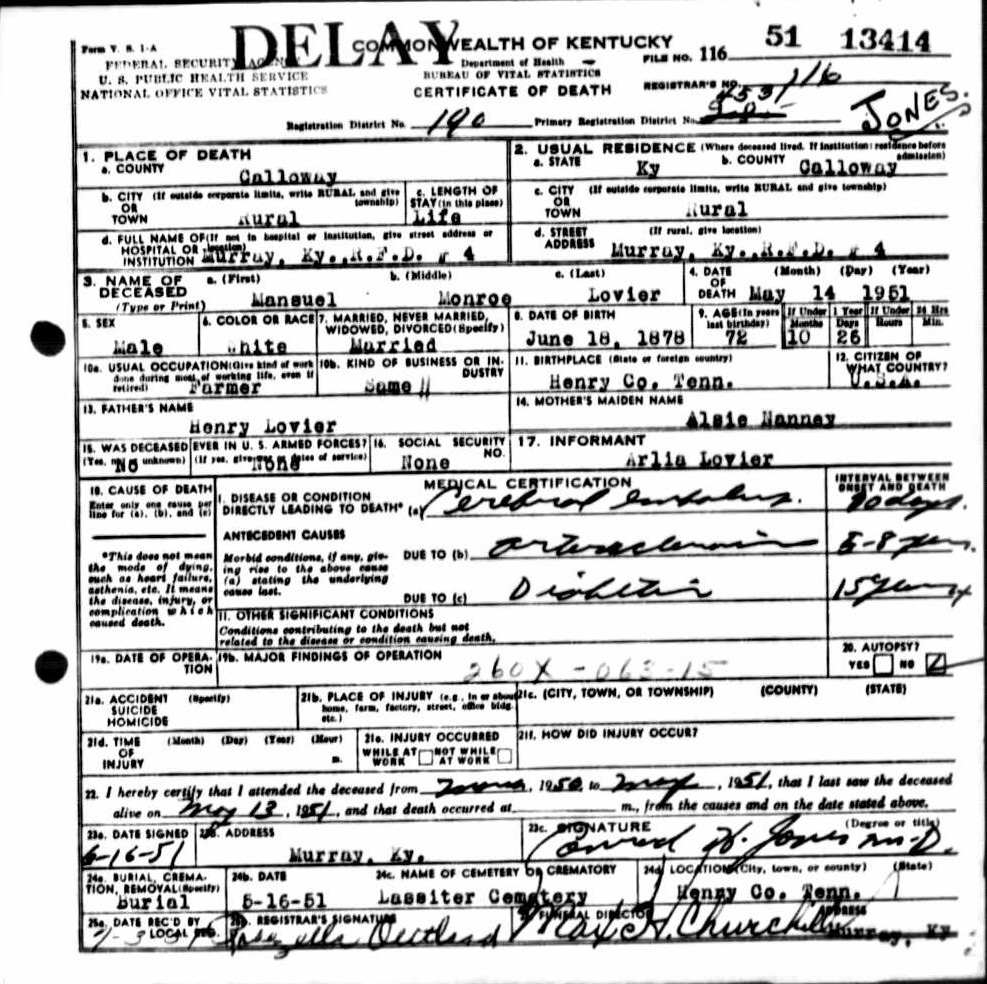 DELAY
Form V. S. 1-A
FEDERAL SECURITY AGENCY
U. S. PUBLIC HEALTH SERVICE
NATIONAL OFFICE VITAL STATISTICS
COMMONWEALTH OF KENTUCKY
Department of Health
BUREAU OF VITAL STATISTICS
CERTIFICATE OF DEATH
FILE NO. 116 51 13414
REGISTRAR'S NO. 116
Registration District No. 190 Primary Registration District No.
JONES.
1. PLACE OF DEATH
a. COUNTY
Calloway
b. CITY (If outside corporate limits, write RURAL and give township)
OR
TOWN Rural
c. LENGTH OF
STAY (in this place)
Life
d. FULL NAME OF (If not in hospital or institution, give street address or location)
HOSPITAL OR
INSTITUTION Murray, Ky., R.F.D. # 4
2. USUAL RESIDENCE (Where deceased lived. If institution: residence before admission)
a. STATE Ky b. COUNTY Calloway
c. CITY (If outside corporate limits, write RURAL and give township)
OR
TOWN Rural
d. STREET (If rural, give location)
ADDRESS Murray, Ky., R.F.D. # 4
3. NAME OF DECEASED (Type or Print)
a. (First) b. (Middle) c. (Last)
Mansuel Monroe Lovier
4. DATE OF DEATH (Month) (Day) (Year)
May 14 1951
5. SEX
Male
6. COLOR OR RACE
White
7. MARRIED, NEVER MARRIED,
WIDOWED, DIVORCED (Specify)
Married
8. DATE OF BIRTH
June 18, 1878
9. AGE (In years last birthday)
72
If Under 1 Year
Months Days
10 26
If Under 24 Hrs
Hours Min.
10a. USUAL OCCUPATION (Give kind of work done during most of working life, even if retired)
Farmer
10b. KIND OF BUSINESS OR INDUSTRY
Same "
11. BIRTHPLACE (State or foreign country)
Henry Co. Tenn.
12. CITIZEN OF WHAT COUNTRY?
U.S.A.
13. FATHER'S NAME
Henry Lovier
14. MOTHER'S MAIDEN NAME
Alsie Nanney
15. WAS DECEASED EVER IN U. S. ARMED FORCES?
(Yes, no, unknown) (If yes, give war or dates of service)
No None
16. SOCIAL SECURITY NO.
None
17. INFORMANT
Arlia Lovier
18. CAUSE OF DEATH
Enter only one cause per
line for (a), (b), and (c)
*This does not mean
the mode of dying,
such as heart failure,
asthenia, etc. It means
the disease, injury, or
complication which
caused death.
MEDICAL CERTIFICATION
INTERVAL BETWEEN
ONSET AND DEATH
I. DISEASE OR CONDITION
DIRECTLY LEADING TO DEATH* (a) Cerebral embolus. days.
ANTECEDENT CAUSES
Morbid conditions, if any, giving rise to the above cause
(a) stating the underlying
cause last.
DUE TO (b) arteriosclerosis 5-8 years.
DUE TO (c) Diabetes 15 years
II. OTHER SIGNIFICANT CONDITIONS
Conditions contributing to the death but not
related to the disease or condition causing death.
19a. DATE OF OPERATION
19b. MAJOR FINDINGS OF OPERATION
260X - 063-15
20. AUTOPSY?
YES NO
21a. ACCIDENT (Specify)
SUICIDE
HOMICIDE
21b. PLACE OF INJURY (e.g., in or about
home, farm, factory, street, office bldg. etc.)
21c. (CITY, TOWN, OR TOWNSHIP) (COUNTY) (STATE)
21d. TIME (Month) (Day) (Year) (Hour)
OF
INJURY m.
21e. INJURY OCCURRED
WHILE AT WORK NOT WHILE AT WORK
21f. HOW DID INJURY OCCUR?
22. I hereby certify that I attended the deceased from , 1950, to May , 1951, that I last saw the deceased
alive on May 13, 1951, and that death occurred at m., from the causes and on the date stated above.
23a. DATE SIGNED
6-16-51
23b. ADDRESS
Murray, Ky.
23c. SIGNATURE (Degree or title)
Conrad H. Jones M-D.
24a. BURIAL, CREMATION, REMOVAL (Specify)
Burial
24b. DATE
5-16-51
24c. NAME OF CEMETERY OR CREMATORY
Lassiter Cemetery
24d. LOCATION (City, town, or county) (State)
Henry Co. Tenn.
25a. DATE REC'D BY LOCAL REG.
25b. REGISTRAR'S SIGNATURE
Outland
FUNERAL DIRECTOR ADDRESS
Max H. Churchill Murray, Ky